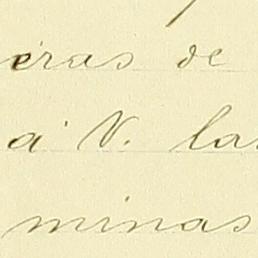 eras de
á V. las
minas